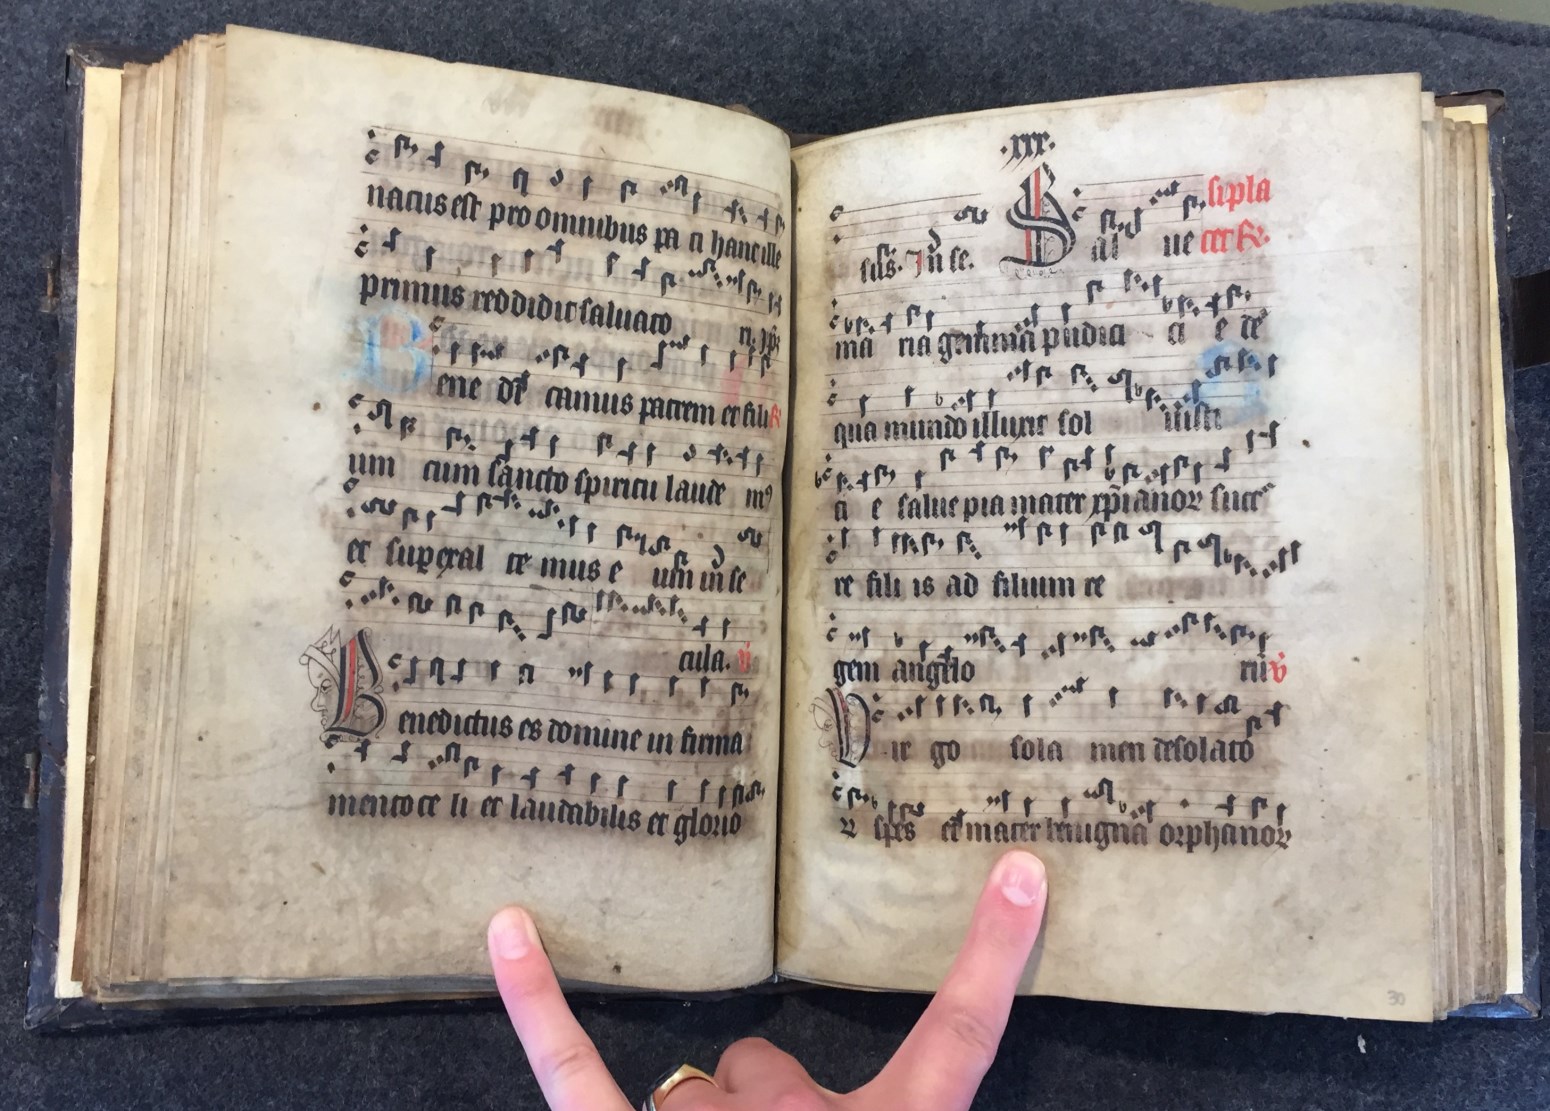 nacus est pro omnibus pa ci hanc ille
primus reddidit saluato ri.
Bene camus patrem et fili
um cum sancto spiritu laude m9
et superexal te mus e um in se
cula. v
Benedictus es domine in firma
mento ce li et laudabilis et glorio
.xxx.
si pla
cet R.
Sal ue
ma ria gemma pudici ci e de
qua mundo illuxit sol iusti
ci e salue pia mater xpianor succ
re fili is ad filium re
gem anglo rū v
Vir go sola men desolato
rr spes mater benigna orphanor
30